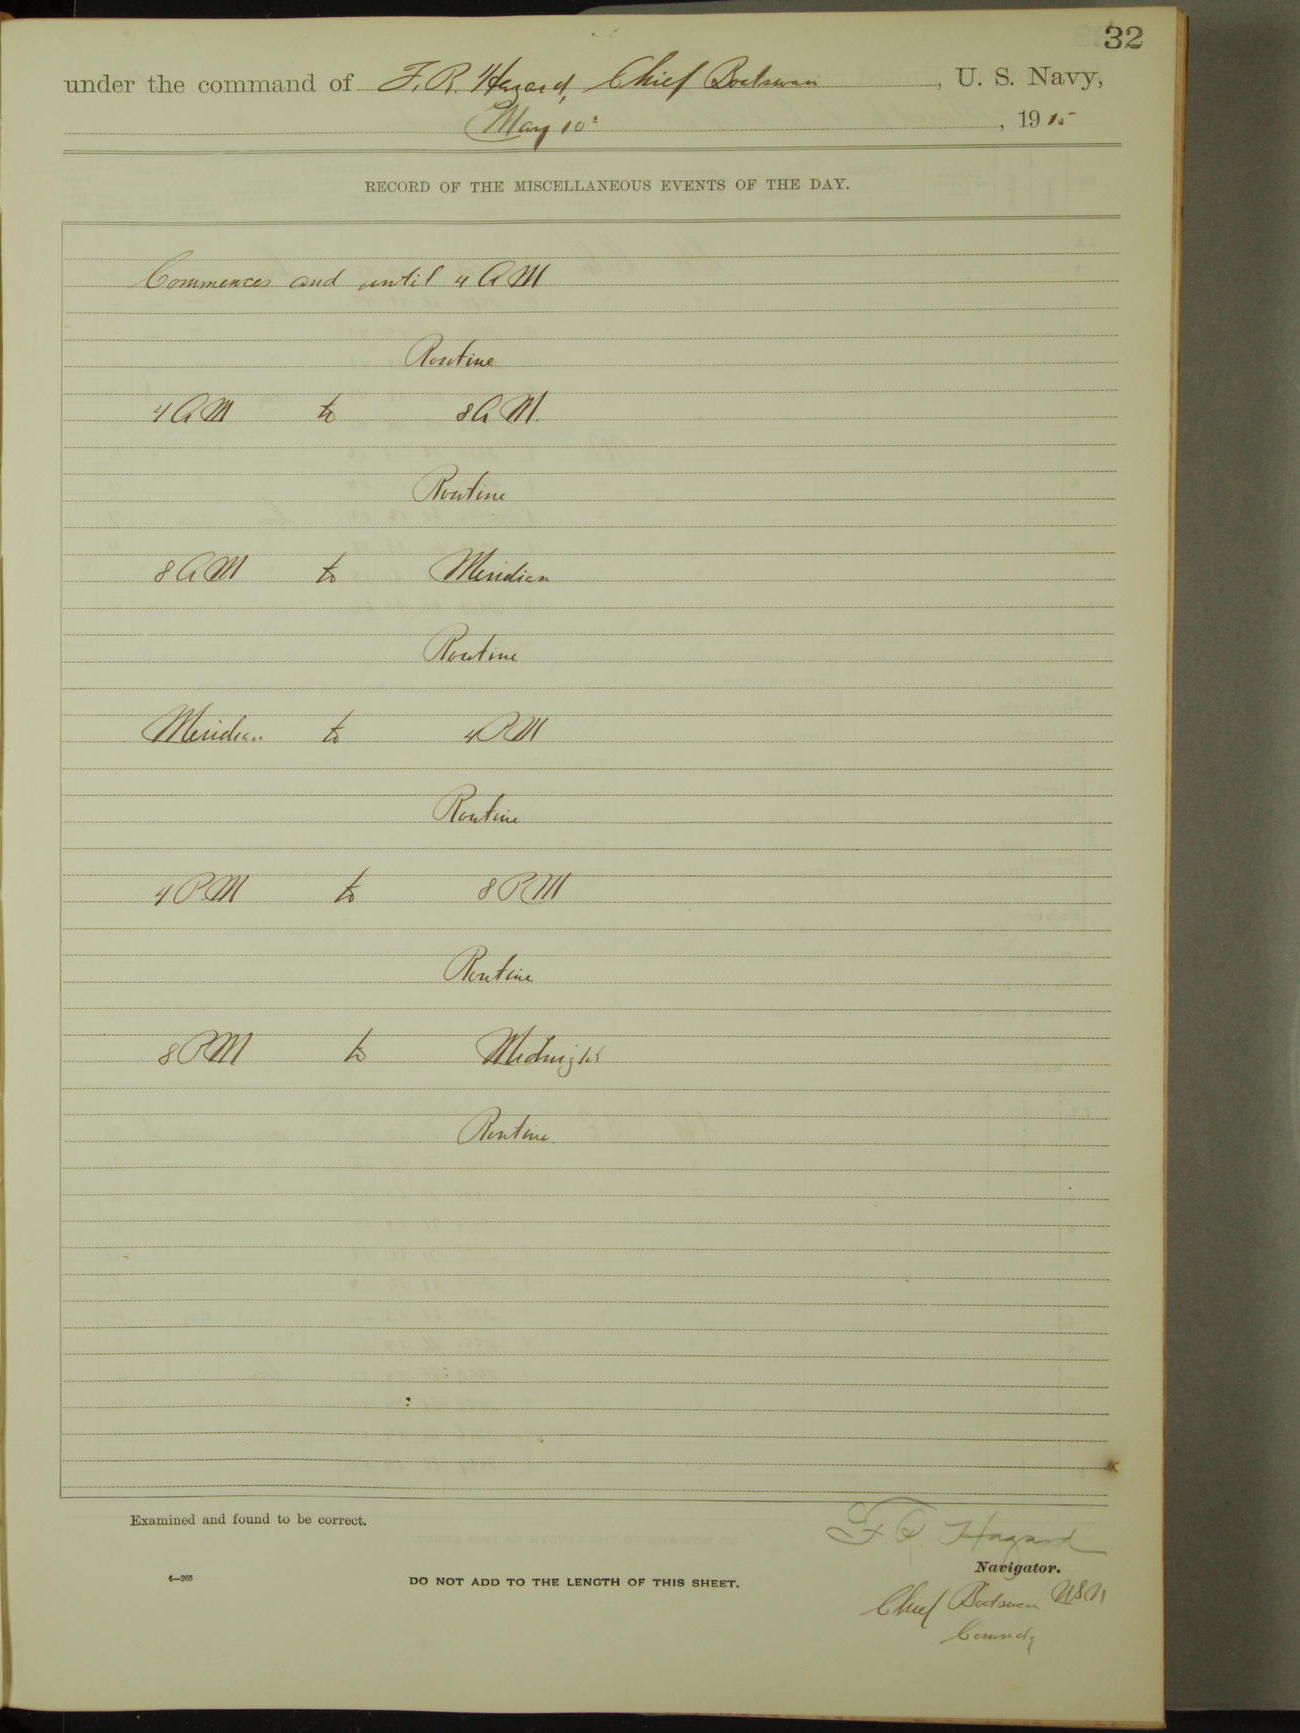 32
under the command of F. R. Hazard, Chief Boatswain, U. S. Navy,
May 10", 1915
RECORD OF THE MISCELLANEOUS EVENTS OF THE DAY.
Commences and until 4 AM
Routine
4 AM to 8 AM.
Routine
8 AM to Meridian
Routine
Meridian to 4 PM
Routine
4 PM to 8 PM
Routine
8 PM to Midnight
Routine
Examined and found to be correct.
F. R. Hazard
Navigator.
4—265
DO NOT ADD TO THE LENGTH OF THIS SHEET.
Chief Boatswain USN
Comndg